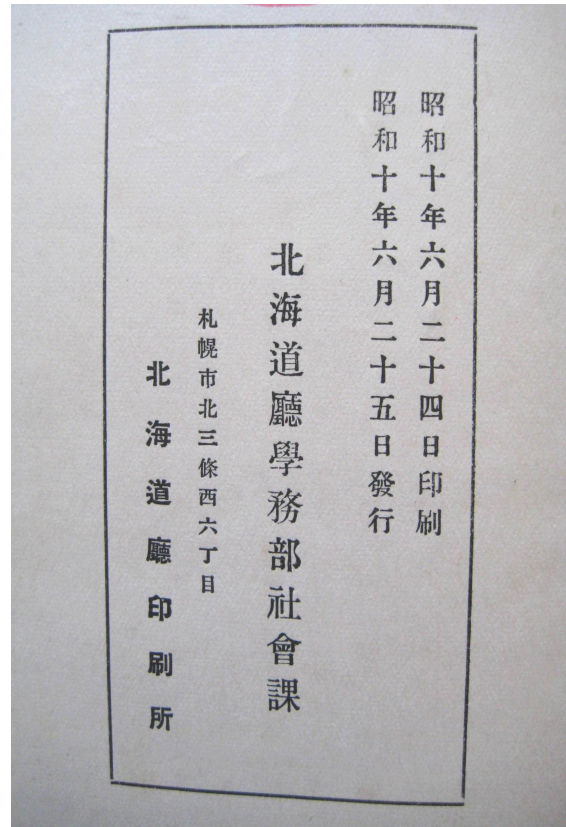 昭和十年六月二十四日印刷
昭和十年六月二十五日發行
北海道廳學務部社會課
札幌市北三條西六丁目
北海道廳印刷所